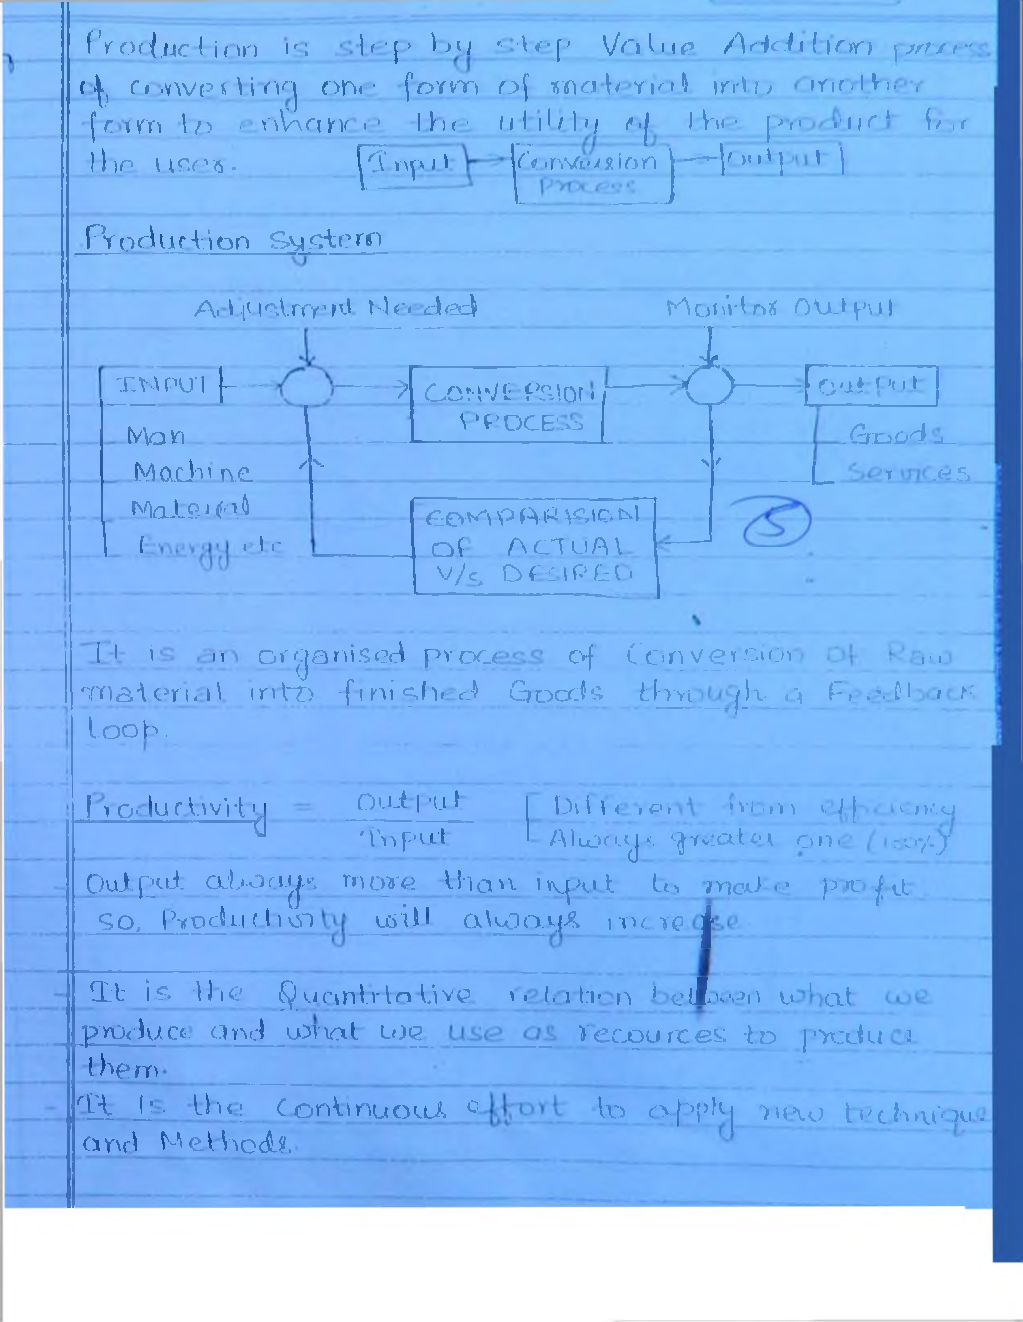 Production is step by step Value Addition process
of converting one form of material into another
form to enhance the utility of the product for
the user.
Input
Conversion
Process
Output
Production System
Adjustment Needed
Monitor Output
INPUT
CONVERSION
PROCESS
Output
Man
Machine
Material
Energy etc
Goods
Services
COMPARISION
OF ACTUAL
V/s DESIRED
5
It is an organised process of Conversion of Raw
material into finished Goods through a Feedback
Loop.
Productivity = Output
Input
Different from efficiency
Always greater one (100%)
Output always more than input to make profit
so, Productivity will always increase
It is the Quantitative relation between what we
produce and what we use as recources to produce
them.
- It is the continuous effort to apply new technique
and Methods.